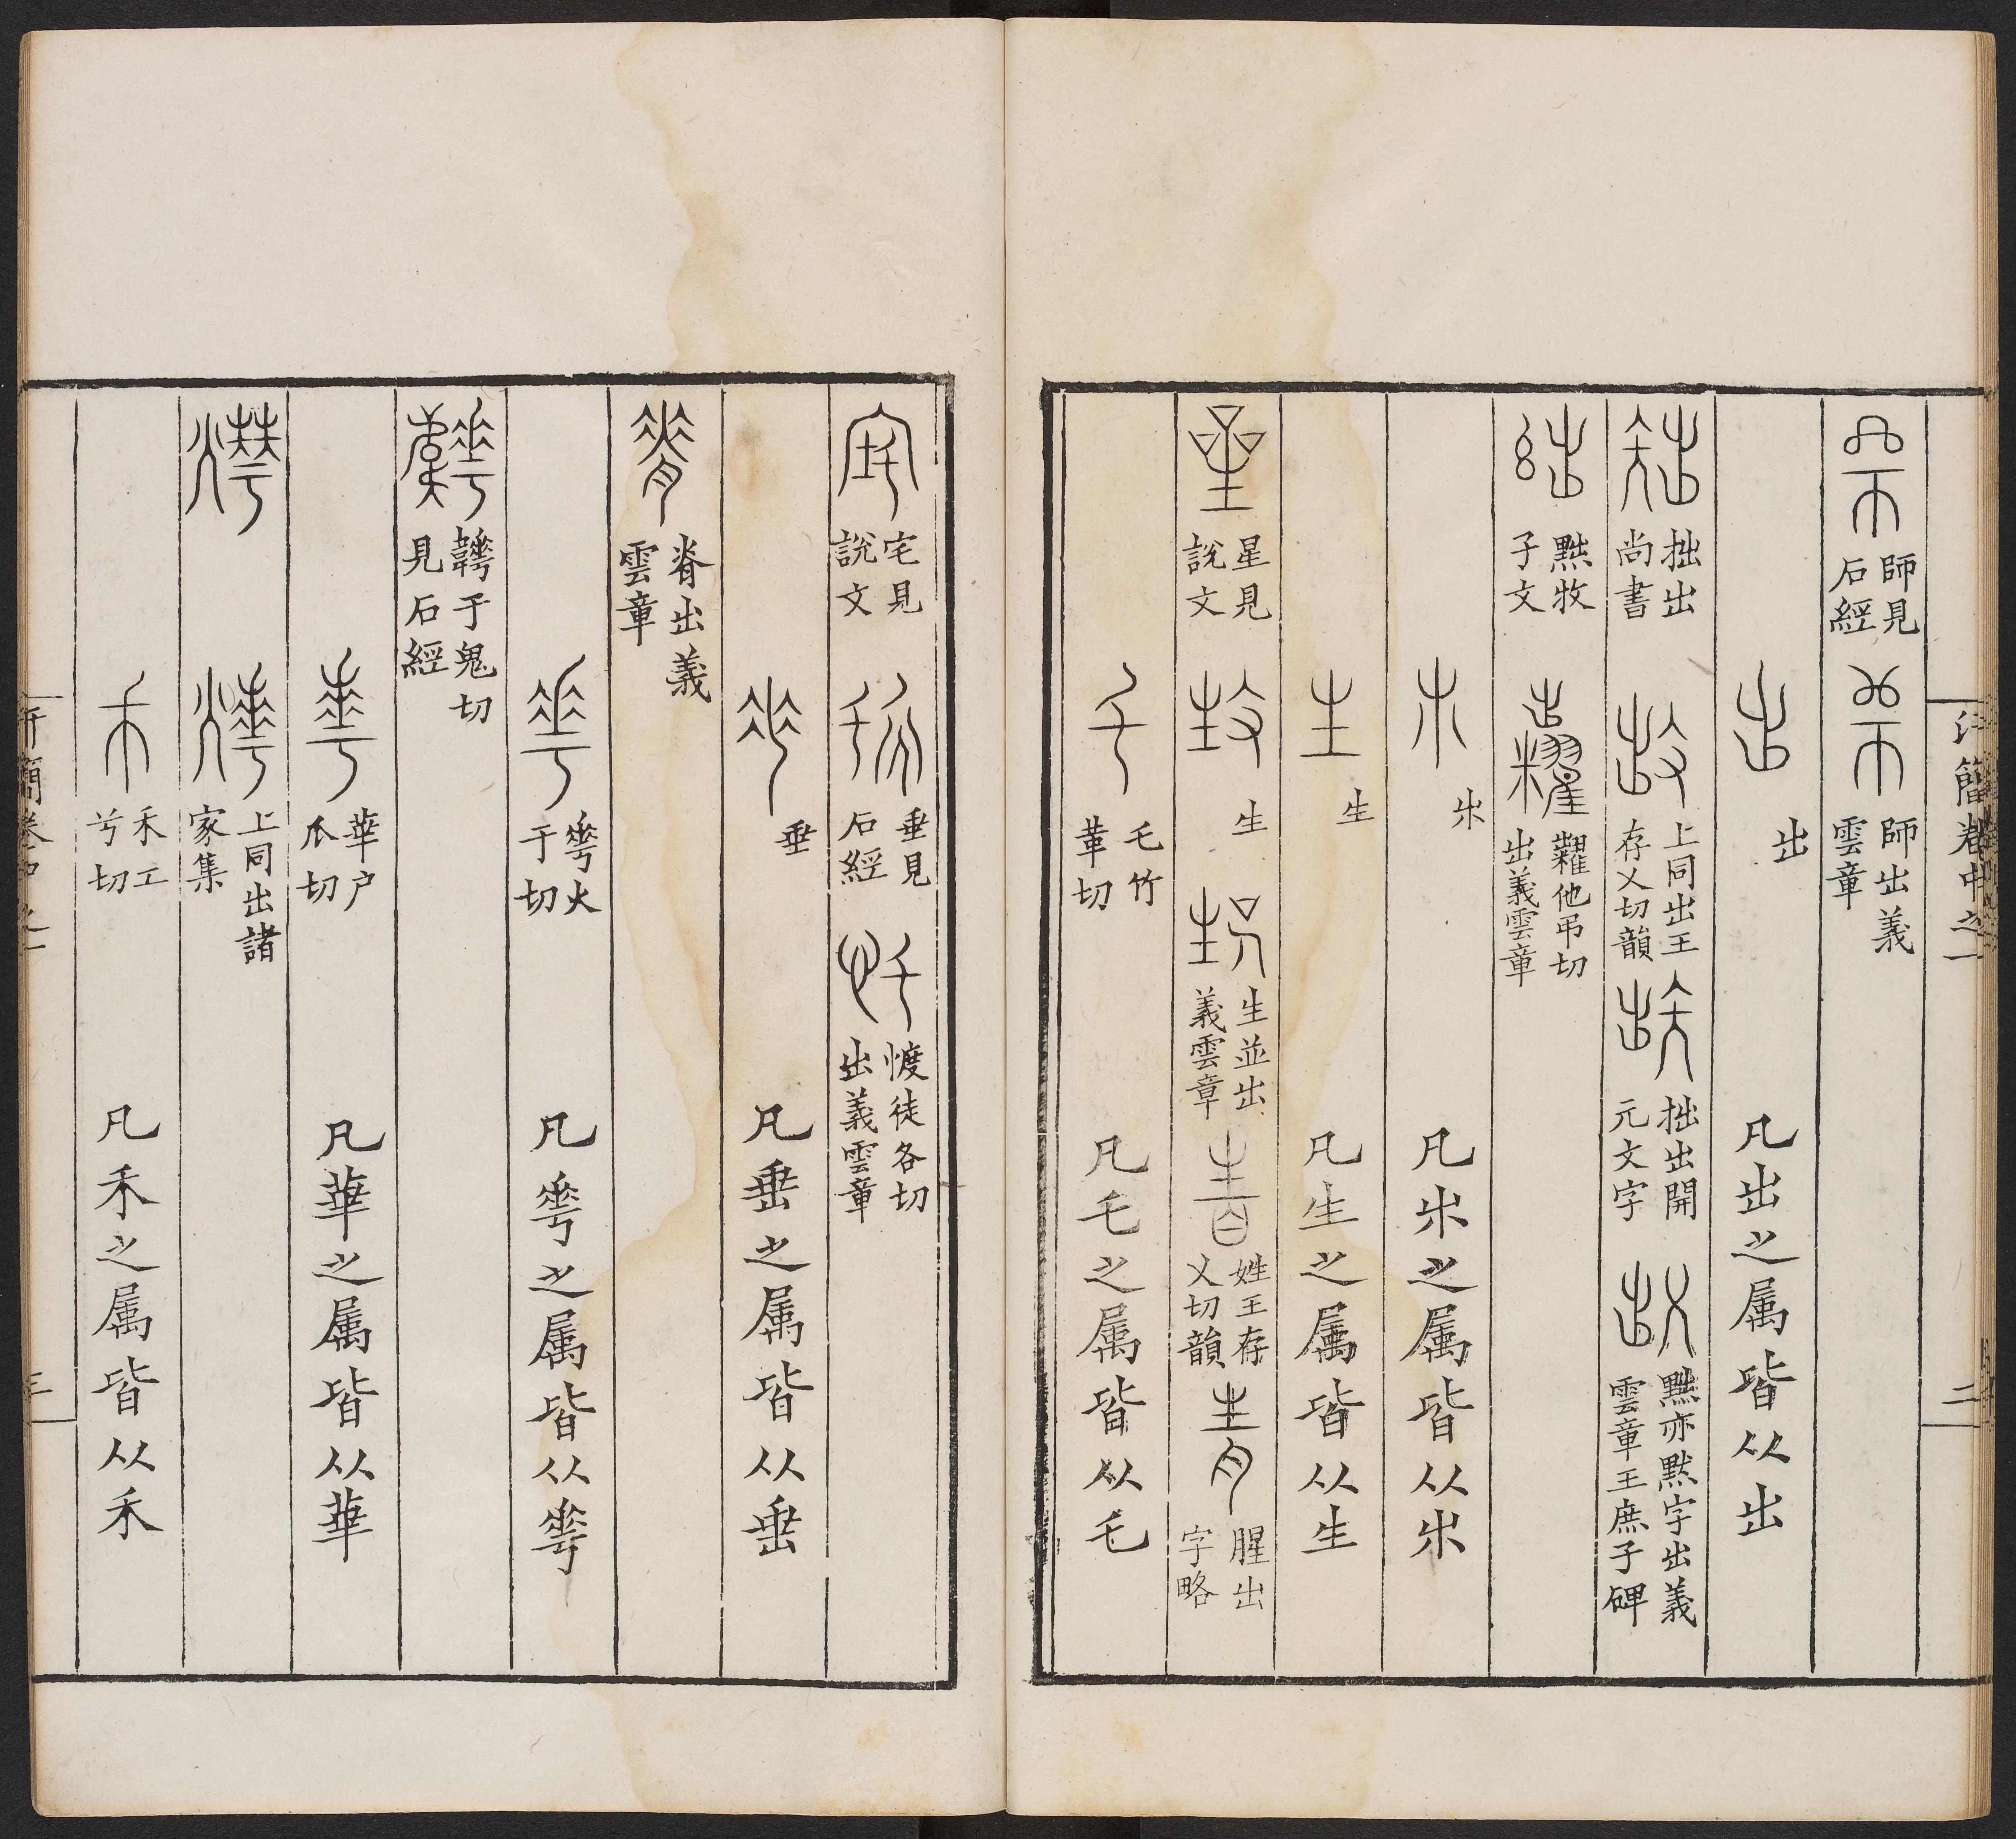 汗簡卷中之一 二
師見石經 師出義雲章
出 凡出之属皆从出
拙出尚書 上同出王存乂切韻 拙出開元文字 黜亦默字出義雲章王庶子碑
黜牧子文 糶他弔切出義雲章
𣎵 凡𣎵之属皆从𣎵
生 凡生之属皆从生
星見說文 生並出義雲章 姓王存乂切韻 腥出字略
乇竹革切 凡乇之属皆从乇
宅見說文 垂見石經 徒各切出義雲章
垂 凡垂之属皆从垂
脊出義雲章
𠌶火于切 凡𠌶之属皆从𠌶
韡于鬼切見石經
華户瓜切 凡華之属皆从華
上同出諸家集
禾工兮切 凡禾之属皆从禾
汗簡卷中之一 三